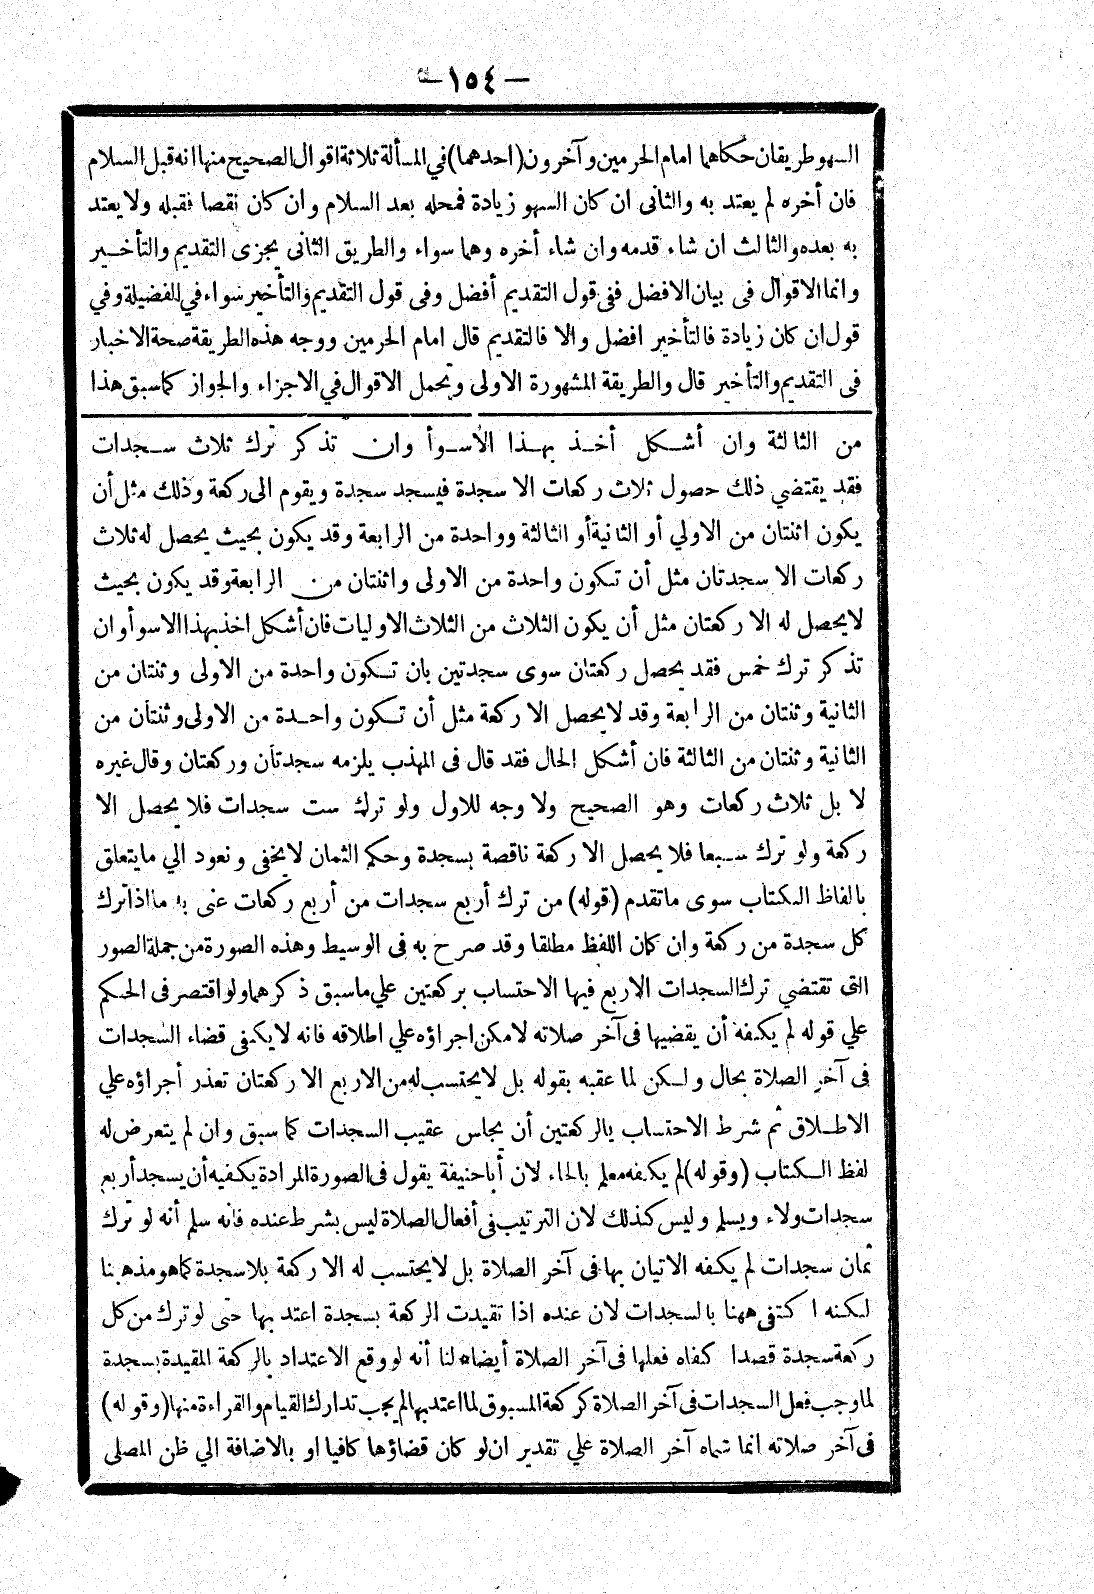 — ١٥٤ —
السهو طريقان حكاهما امام الحرمين وآخرون (احدهما) في المسألة ثلاثة اقوال الصحيح منها انه قبل السلام
فان أخره لم يعتد به والثانى ان كان السهو زيادة فمحله بعد السلام وان كان نقصا فقبله ولا يعتد
به بعده والثالث ان شاء قدمه وان شاء أخره وهما سواء والطريق الثانى يجزى التقديم والتأخير
وانما الاقوال فى بيان الافضل ففى قول التقديم أفضل وفى قول التقديم والتأخير سواء في الفضيلة وفي
قول ان كان زيادة فالتأخير افضل والا فالتقديم قال امام الحرمين ووجه هذه الطريقة صحة الاخبار
فى التقديم والتأخير قال والطريقة المشهورة الاولى وتحمل الاقوال في الاجزاء والجواز كما سبق هذا
من الثالثة وان أشكل أخذ بهذا الأسوأ وان تذكر ترك ثلاث سجدات
فقد يقتضي ذلك حصول ثلاث ركعات الا سجدة فيسجد سجدة ويقوم الى ركعة وذلك مثل أن
يكون اثنتان من الاولي أو الثانية أو الثالثة وواحدة من الرابعة وقد يكون بحيث يحصل له ثلاث
ركعات الا سجدتان مثل أن تكون واحدة من الاولى واثنتان من الرابعة وقد يكون بحيث
لا يحصل له الا ركعتان مثل أن يكون الثلاث من الثلاث الاوليات فان أشكل اخذ بهذا الاسوأ وان
تذكر ترك خمس فقد يحصل ركعتان سوى سجدتين بان تكون واحدة من الاولى وثنتان من
الثانية وثنتان من الرابعة وقد لا يحصل الا ركعة مثل أن تكون واحدة من الاولى وثنتان من
الثانية وثنتان من الثالثة فان أشكل الحال فقد قال فى المهذب يلزمه سجدتان وركعتان وقال غيره
لا بل ثلاث ركعات وهو الصحيح ولا وجه للاول ولو ترك ست سجدات فلا يحصل الا
ركعة ولو ترك سبعا فلا يحصل الا ركعة ناقصة بسجدة وحكم الثمان لا يخفى ونعود الي ما يتعلق
بالفاظ الكتاب سوى ما تقدم (قوله) من ترك أربع سجدات من أربع ركعات عنى به ما اذا ترك
كل سجدة من ركعة وان كان اللفظ مطلقا وقد صرح به فى الوسيط وهذه الصورة من جملة الصور
التى تقتضي ترك السجدات الاربع فيها الاحتساب بركعتين علي ما سبق ذكرهما ولو اقتصر فى الحكم
علي قوله لم يكفه أن يقضيها فى آخر صلاته لامكن اجراؤه علي اطلاقه فانه لا يكفى قضاء السجدات
فى آخر الصلاة بحال ولكن لما عقبه بقوله بل لا يحتسب له من الاربع الا ركعتان تعذر أجراؤه علي
الاطلاق ثم شرط الاحتساب بالركعتين أن يجلس عقيب السجدات كما سبق وان لم يتعرض له
لفظ الكتاب (وقوله) لم يكفه معلم بالحاء لان أبا حنيفة يقول فى الصورة المرادة يكفيه أن يسجد أربع
سجدات ولاء ويسلم وليس كذلك لان الترتيب فى أفعال الصلاة ليس بشرط عنده فانه سلم أنه لو ترك
ثمان سجدات لم يكفه الاتيان بها فى آخر الصلاة بل لا يحتسب له الا ركعة بلا سجدة كما هو مذهبنا
لكنه اكتفى ههنا بالسجدات لان عنده اذا تقيدت الركعة بسجدة اعتد بها حتى لو ترك من كل
ركعة سجدة قصدا كفاه فعلها فى آخر الصلاة أيضا* لنا أنه لو وقع الاعتداد بالركعة المقيدة بسجدة
لما وجب فعل السجدات فى آخر الصلاة كركعة المسبوق لما اعتد بها لم يجب تدارك القيام والقراءة منها (وقوله)
فى آخر صلاته انما سماه آخر الصلاة علي تقدير ان لو كان قضاؤها كافيا او بالاضافة الي ظن المصلى